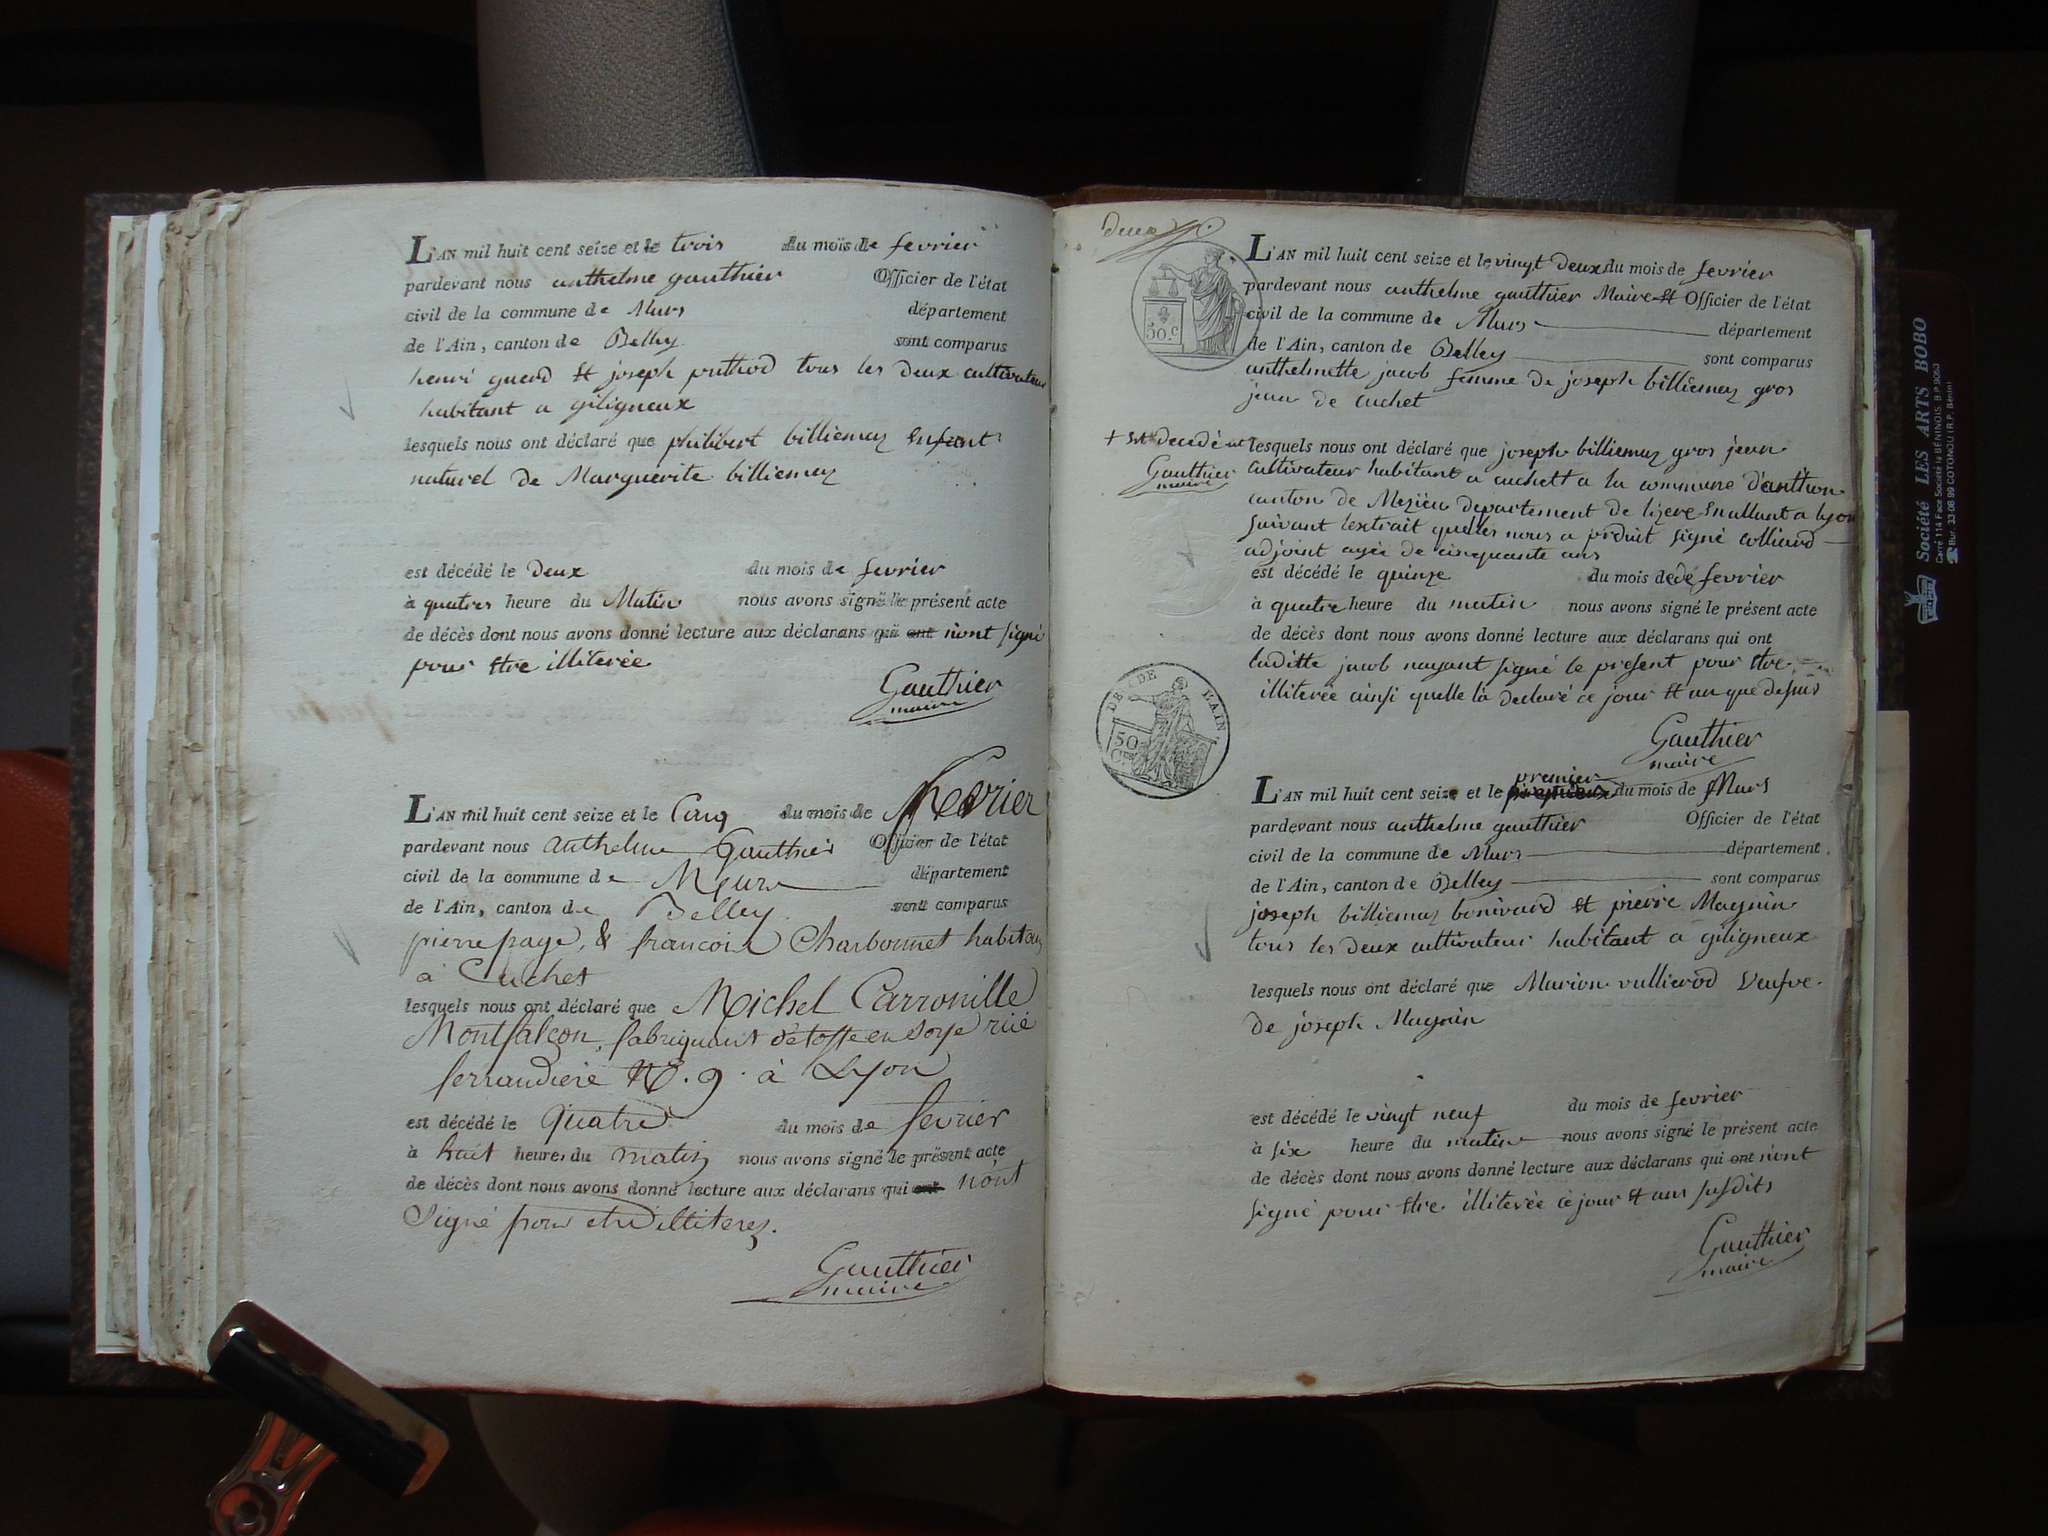 L'AN mil huit cent seize et le trois du mois de fevrier
pardevant nous anthelme gauthier Officier de l'état
civil de la commune de Murs département
de l'Ain, canton de Belley sont comparus
henri guerd et joseph tous les deux cultivateur
habitant a giligneux
lesquels nous ont déclaré que philibert billiemaz enfant
naturel de Marguerite billiemaz
est décédé le deux du mois de fevrier
à quatres heure du Matin nous avons signé le présent acte
de décès dont nous avons donné lecture aux déclarans qui ont n'ont signé
pour etre illiterée
Gauthier
maire
L'AN mil huit cent seize et le Cinq du mois de fevrier
pardevant nous Anthelme Gauthier Officier de l'état
civil de la commune de Murs département
de l'Ain, canton de Belley sont comparus
pierre page, & francois Charbonnet habitans
à Cuchet
lesquels nous ont déclaré que Michel Carronille
Montfalcon, fabriquant d'étoffe en soye rue
ferrandiere N°. 9. à Lyon
est décédé le quatre du mois de fevrier
à huit heures du matin nous avons signé le présent acte
de décès dont nous avons donné lecture aux déclarans qui ont n'ont
signé pour etre illiterez.
Gauthier
maire
deux
50.c
L'AN mil huit cent seize et le vingt deux du mois de fevrier
pardevant nous anthelme gauthier Maire et Officier de l'état
civil de la commune de Murs département
de l'Ain, canton de Belley sont comparus
anthelmette jacob femme de joseph billiemaz gros
jean de cuchet
+ est decedé
Gauthier
maire
lesquels nous ont déclaré que joseph billiemaz gros jean
cultivateur habitant a cuchett a la commune d'anthon
canton de Mezieu departement de lizere en allant a lyon
suivant lextrait quelles nous a produit signé colliard
adjoint agée de cinquante ans
est décédé le quinze du mois de de fevrier
à quatre heure du matin nous avons signé le présent acte
de décès dont nous avons donné lecture aux déclarans qui ont
laditte jacob nayant signé le present pour etre
illiterée ainsi quelle la declaré ce jour et an que desus
Gauthier
maire
DEP DE L'AIN.
50
Cmes
premier
L'AN mil huit cent seize et le du mois de Mars
pardevant nous anthelme gauthier Officier de l'état
civil de la commune de Murs département
de l'Ain, canton de Belley sont comparus
joseph billiemaz bonivard et pierre Magnin
tous les deux cultivateur habitant a giligneux
lesquels nous ont déclaré que Marion vullierod veufve
de joseph Magnin
est décédé le vingt neuf du mois de fevrier
à six heure du matin nous avons signé le présent acte
de décès dont nous avons donné lecture aux déclarans qui ont n'ont
signé pour etre illiterée ce jour et ans susdits
Gauthier
maire
Société LES ARTS BOBO
Carré 114 Face Société la BÉNINOIS. B.P.
Bur. 33 08 99 COTONOU (R.P. Bénin)